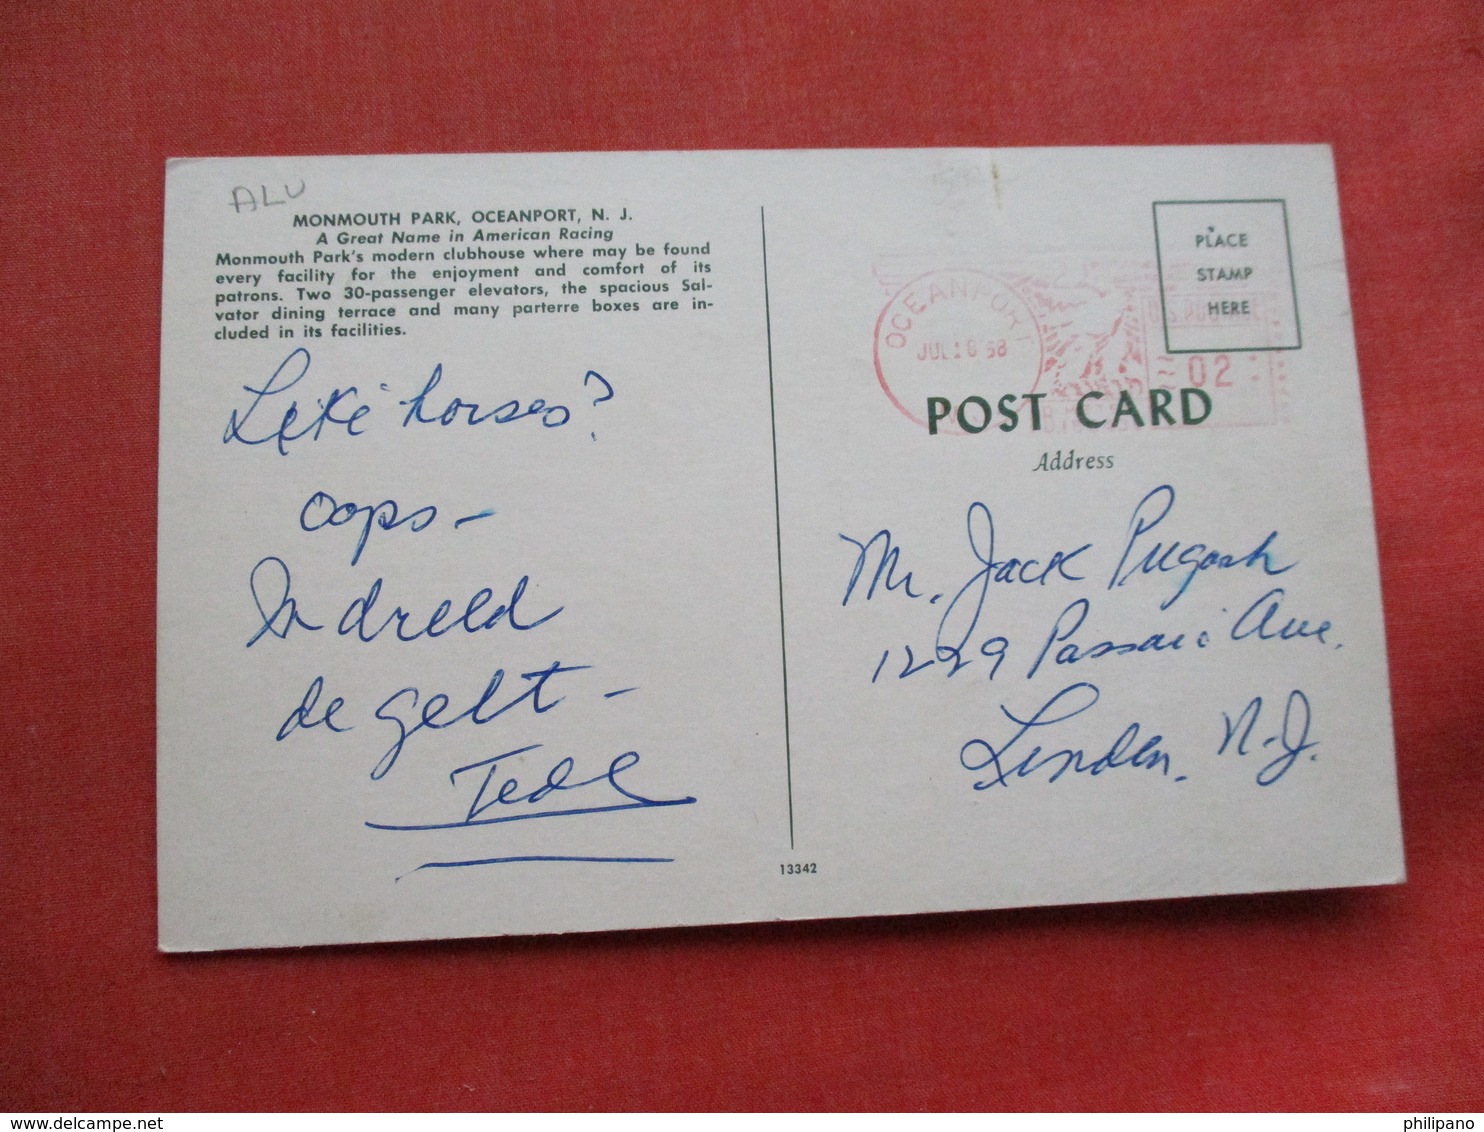 ALU
MONMOUTH PARK, OCEANPORT, N. J.
A Great Name in American Racing
Monmouth Park's modern clubhouse where may be found
every facility for the enjoyment and comfort of its
patrons. Two 30-passenger elevators, the spacious Sal-
vator dining terrace and many parterre boxes are in-
cluded in its facilities.
Like horses?
oops -
In dreed
de gelt -
Ted
13342
PLACE
STAMP
HERE
OCEANPORT
JUL 16 58
U.S. POSTAGE
02
POST CARD
Address
Mr. Jack Pugash
1229 Passaic Ave.
Linden, N.J.
delcampe.net
philipano